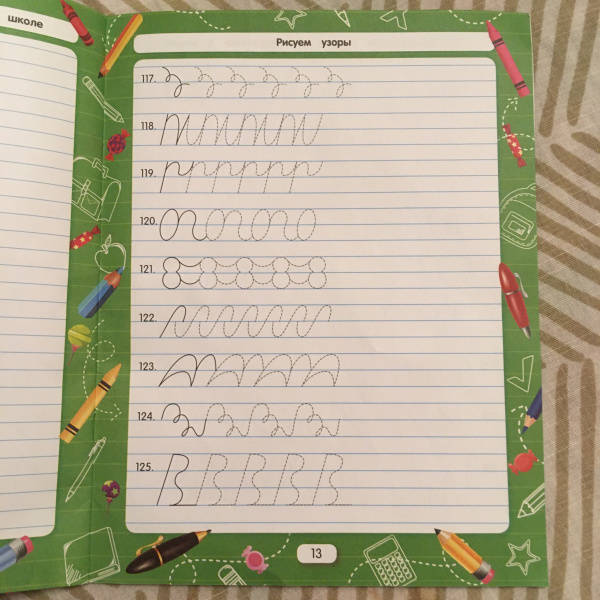 школе
Рисуем узоры
117.
118.
119.
120.
121.
122.
123.
124.
125.
13